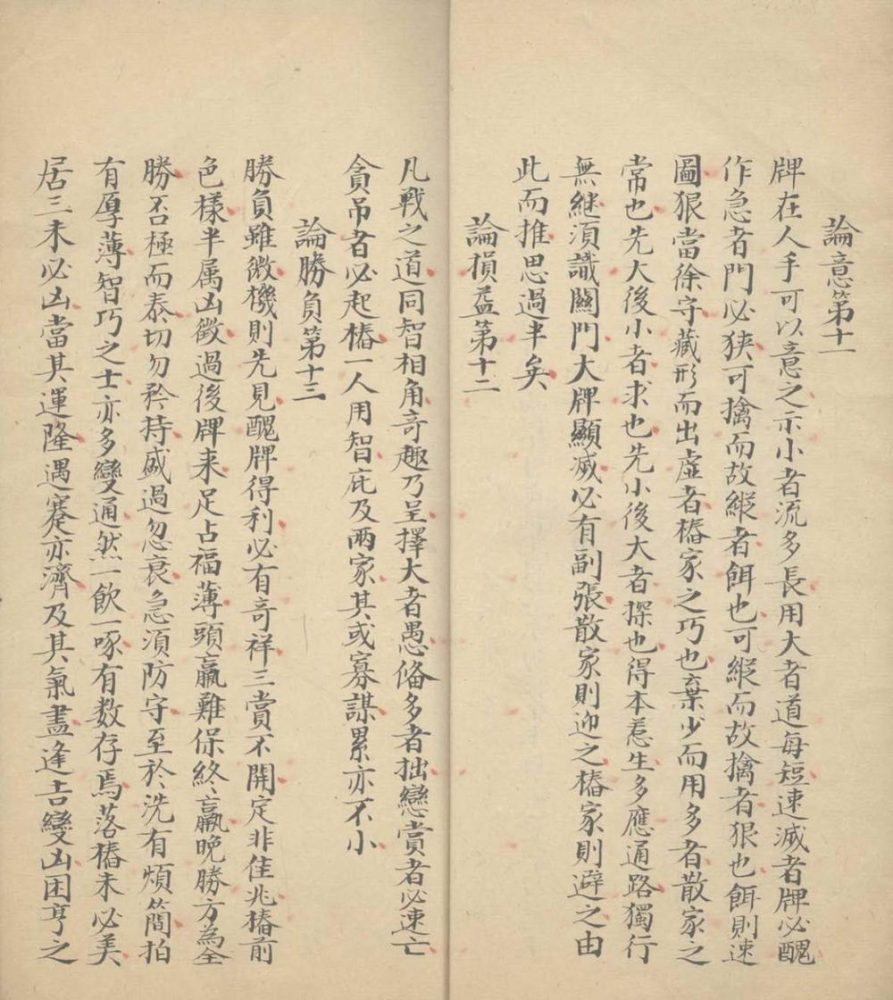 論意第十一
牌在人手可以意之示小者流多長用大者道每短速滅者牌必醜
作急者門必狹可擒而故縱者餌也可縱而故擒者狠也餌則速
圖狠當徐守藏形而出虛者樁家之巧也棄少而用多者散家之
常也先大後小者求也先小後大者探也得本惹生多應通路獨行
無継須識關門大牌顯滅必有副張散家則迎之樁家則避之由
此而推思過半矣
論損益第十二
凡戰之道同智相角奇趣乃呈擇大者愚俻多者拙戀賞者必速亡
貪吊者必起樁一人用智庇及兩家其或寡謀累亦不小
論勝負第十三
勝負雖微機則先見醜牌得利必有奇祥三賞不開定非佳兆樁前
色様半属凶徴過後牌来足占福薄頭贏難保終贏晚勝方為全
勝否極而泰切勿矜持盛過忽衰急須防守至於洗有煩簡拍
有厚薄智巧之士亦多變通然一飲一啄有数存焉落樁未必美
居三未必凶當其運隆遇蹇亦濟及其氣盡逢吉變凶困亨之